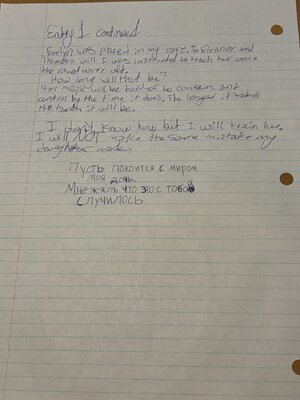 Entry 1 continued
Evelyn was placed in my care. in Eleanor and
will I was instructed to teach her once
the were old.
How long will that be?
Her magic will be hard to contain and
control by the time it does. The longer it takes
the harder it will be.
I don't know how but I will train her.
I will NOT make the same mistake my
daughter made.
Пусть покоится с миром
моя дочь.
Мне жаль что это с тобой
случилось